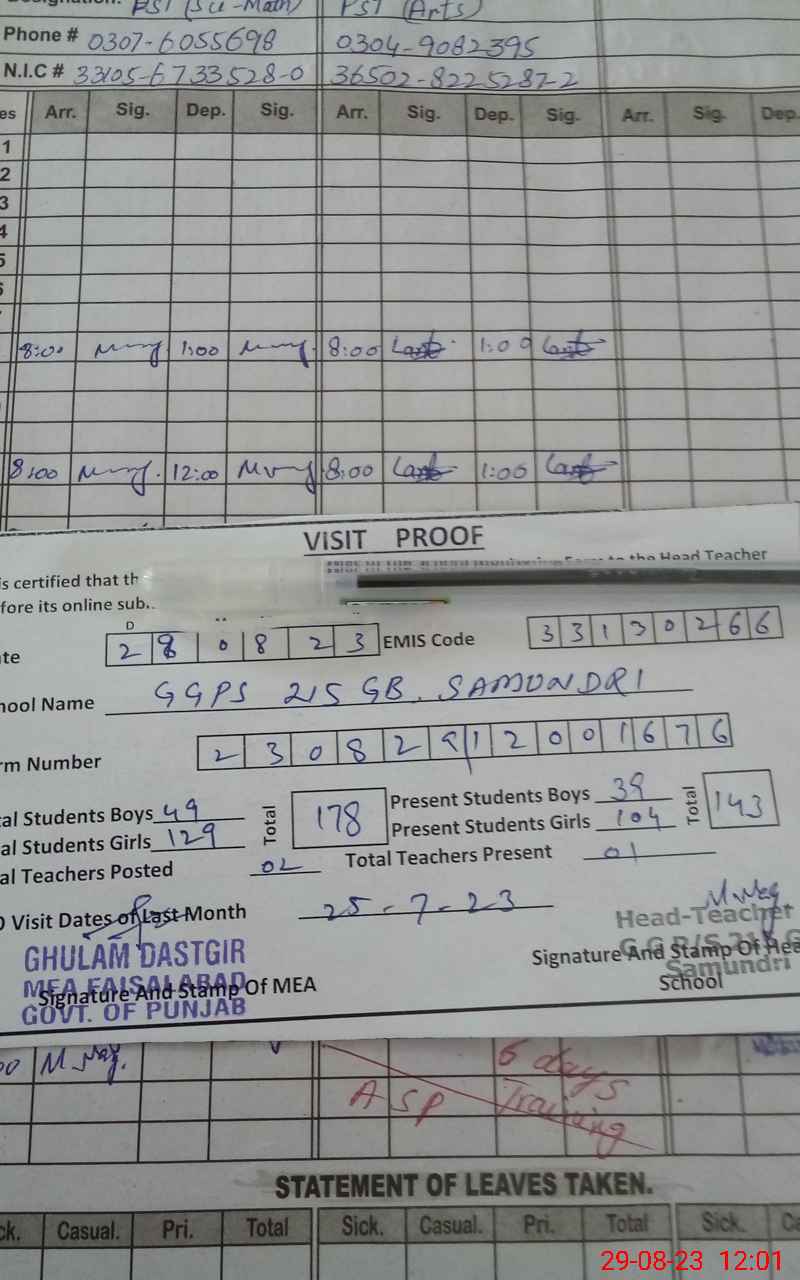 PST (Sci-Math) PST (Arts)
Phone # 0307-6055698 0304-9082395
N.I.C # 33105-6733528-0 36502-8225287-2
es Arr. Sig. Dep. Sig. Arr. Sig. Dep. Sig. Arr. Sig. Dep.
1
2
3
4
5
6
8:00 1:00 8:00 1:00
8:00 12:00 8:00 1:00
VISIT PROOF
is certified that th to the Head Teacher
fore its online sub..
D
te 28 08 23 EMIS Code 33130266
hool Name GGPS 215 GB. SAMUNDRI
rm Number 23082912001676
al Students Boys 49 Total 178 Present Students Boys 39 Total 143
al Students Girls 129 Present Students Girls 104
al Teachers Posted 02 Total Teachers Present 01
O Visit Dates of Last Month 25-7-23
GHULAM DASTGIR
MEA FAISALABAD
GOVT. OF PUNJAB
Signature And Stamp Of MEA
Head-Teacher
Samundri
Signature And Stamp Of Hea
School
6 days
ASP Training
STATEMENT OF LEAVES TAKEN.
ck. Casual. Pri. Total Sick. Casual. Pri. Total Sick. Ca
29-08-23 12:01